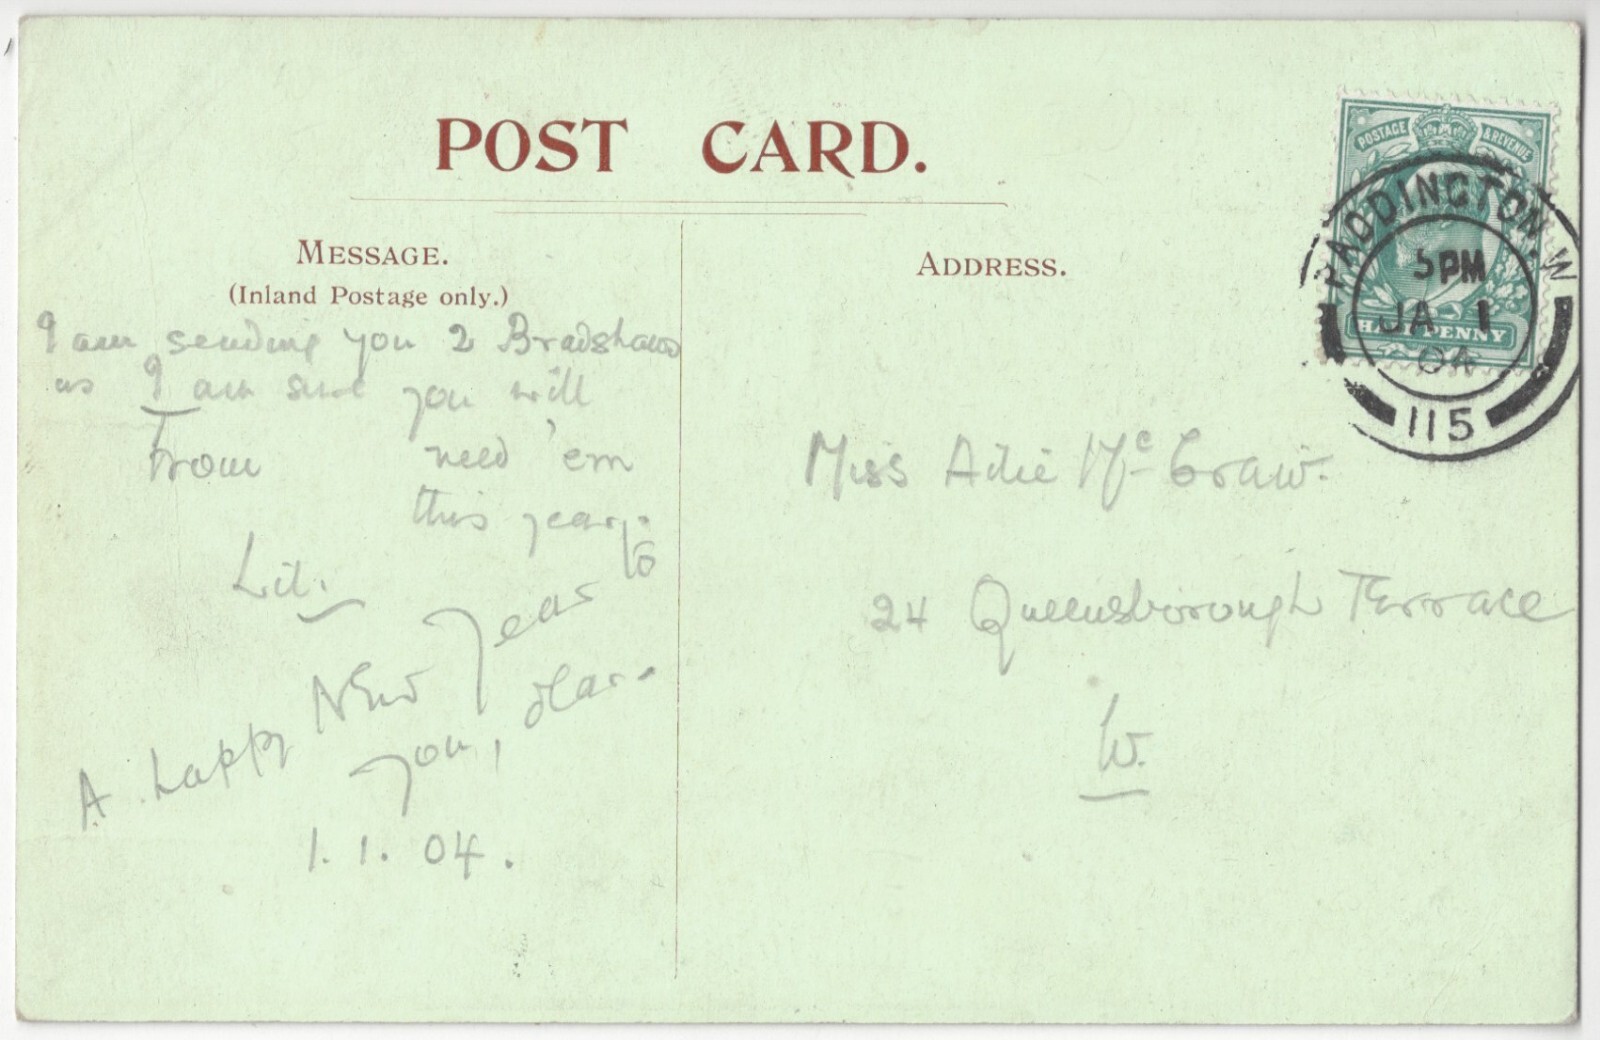 POST CARD.
MESSAGE.
(Inland Postage only.)
I am sending you 2 Bradshaws
as I am sure you will
From need 'em
this year.
Lil.
A happy New Year to
you, dear.
1.1.04.
ADDRESS.
Miss Adie McCraw.
24 Queensborough Terrace
W.
POSTAGE & REVENUE
HALFPENNY
PADDINGTON. W
5 PM
JA 1
04
115